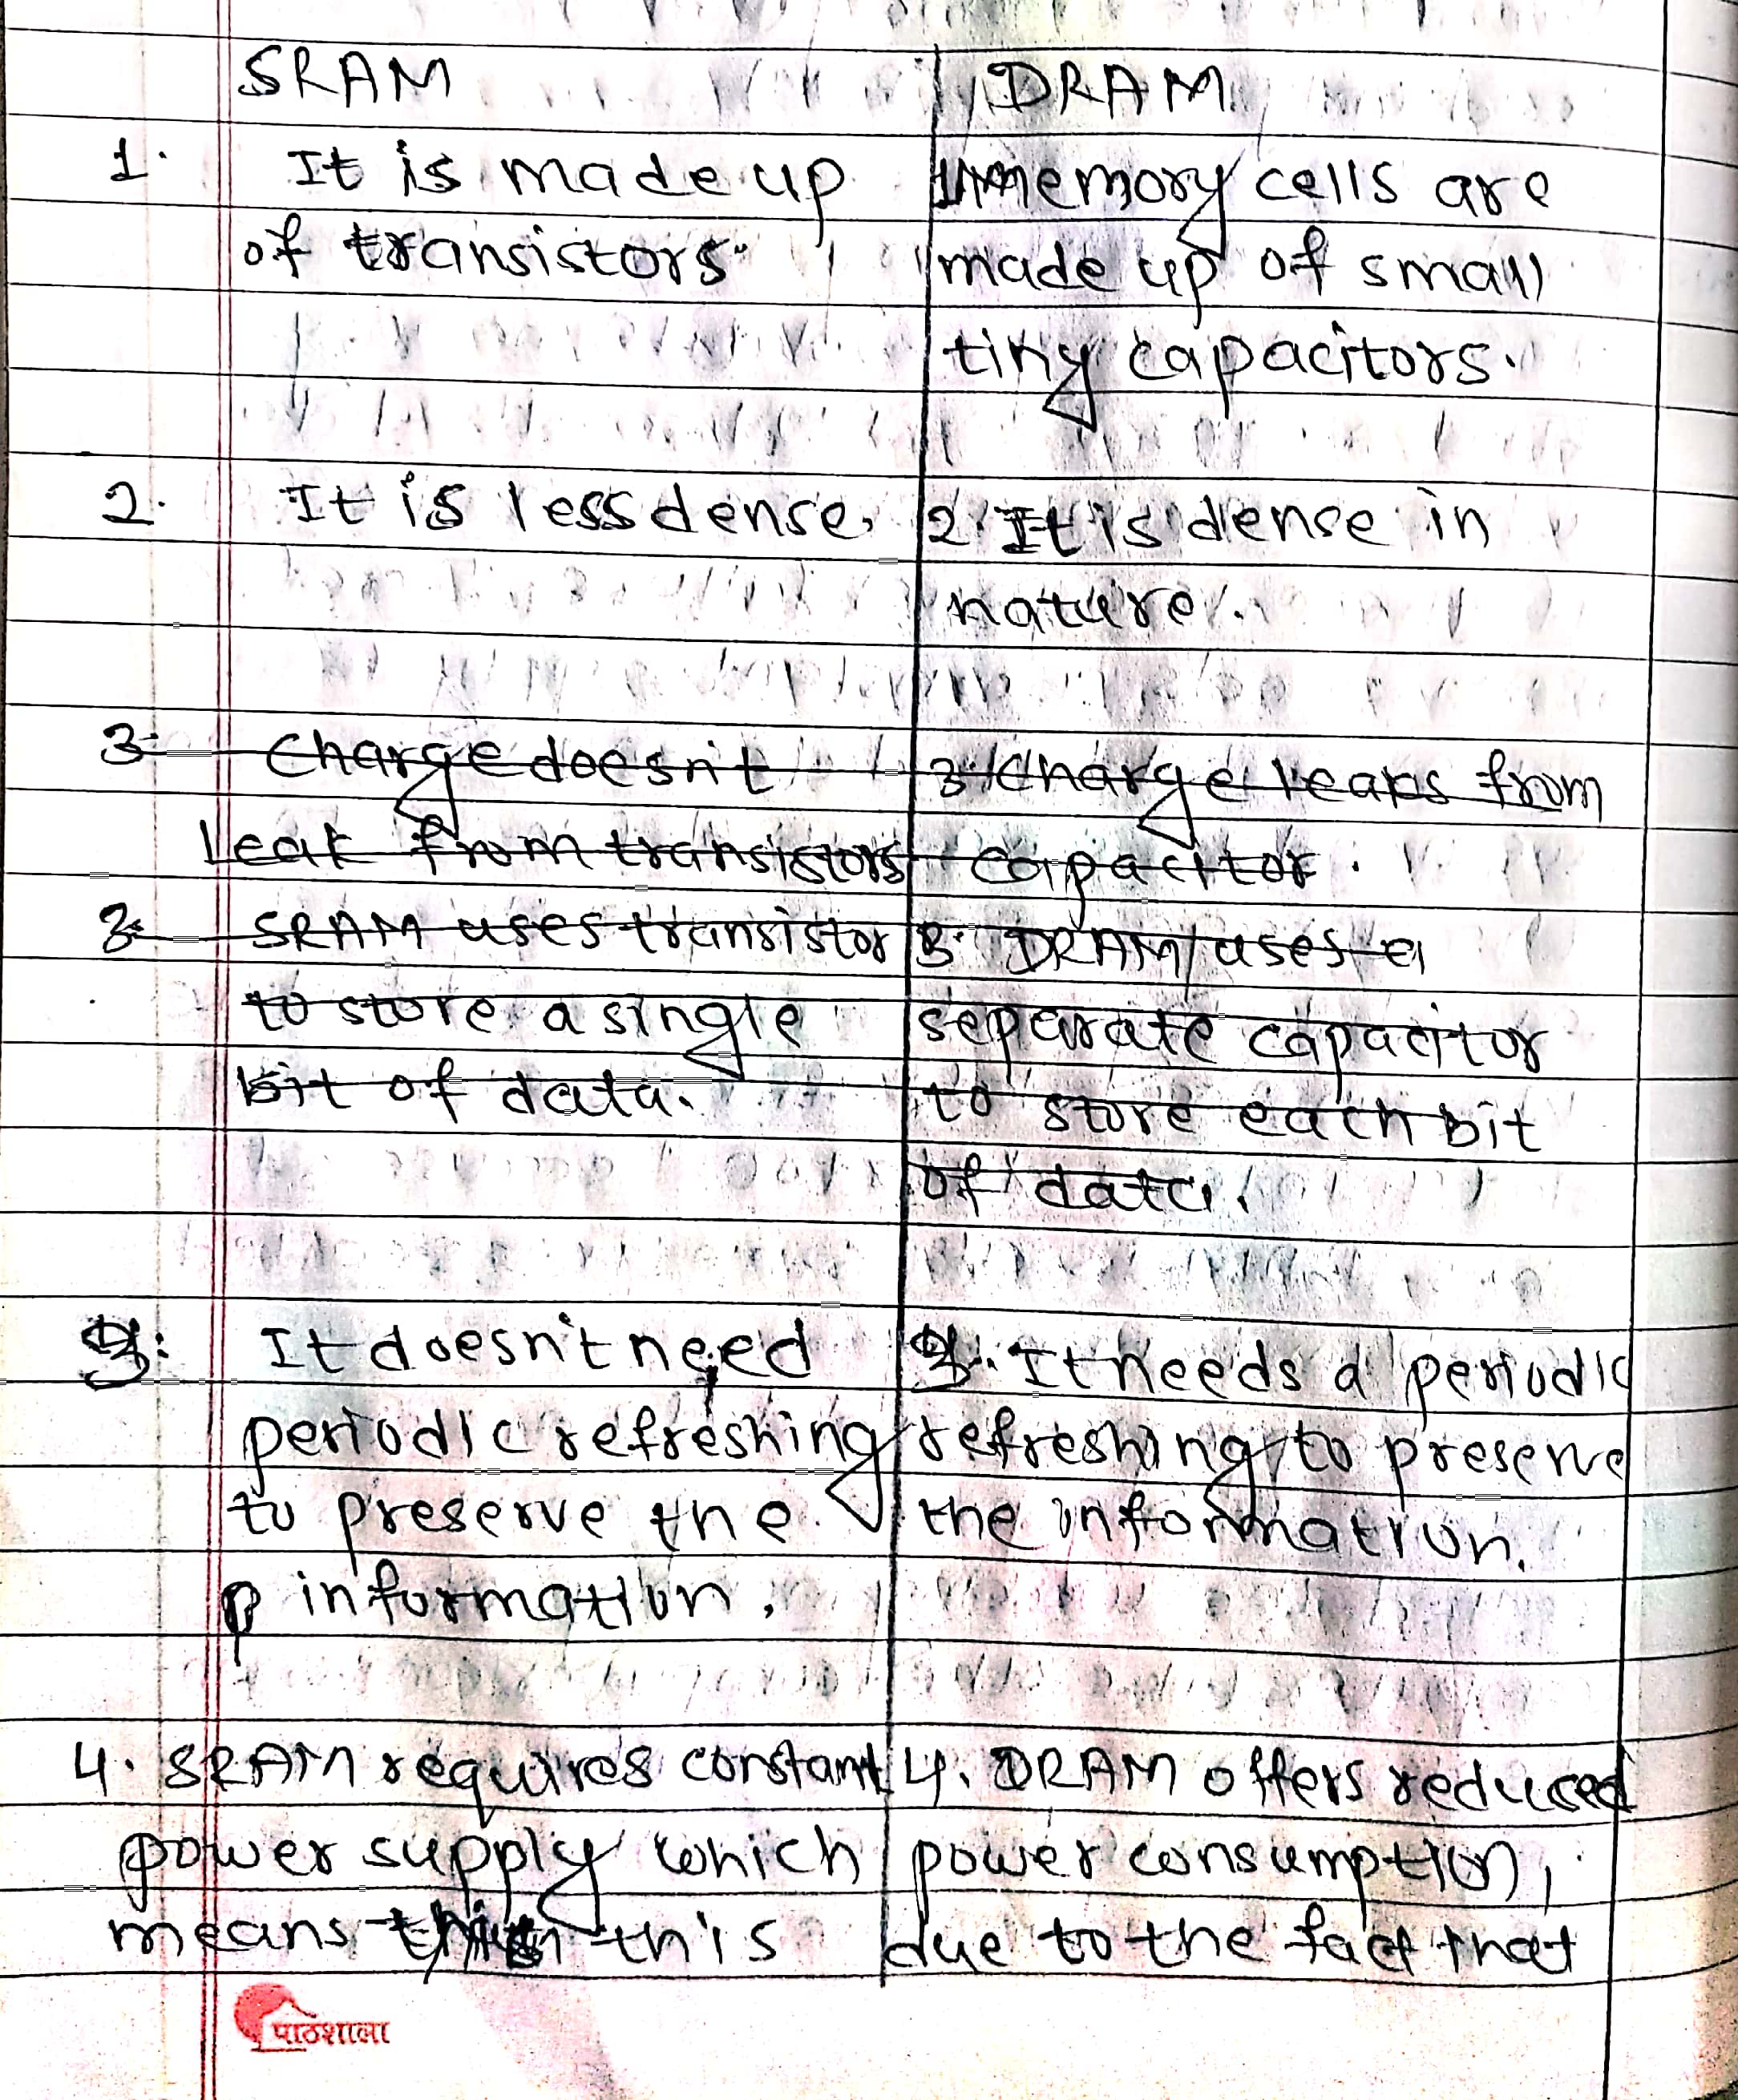 SRAM
DRAM
1. It is made up
of transistors.
1. memory cells are
made up of small
tiny capacitors.
2. It is less dense.
2. It is dense in
nature.
3. Charge doesn't
leak from transistors
3. Charge leaks from
capacitor.
3. SRAM uses transistor
to store a single
bit of data.
3. DRAM uses a
separate capacitor
to store each bit
of data.
3. It doesn't need
periodic refreshing
to preserve the
information.
3. It needs a periodic
refreshing to preserve
the information.
4. SRAM requires constant
power supply which
means this
4. DRAM offers reduced
power consumption,
due to the fact that
पाठशाला